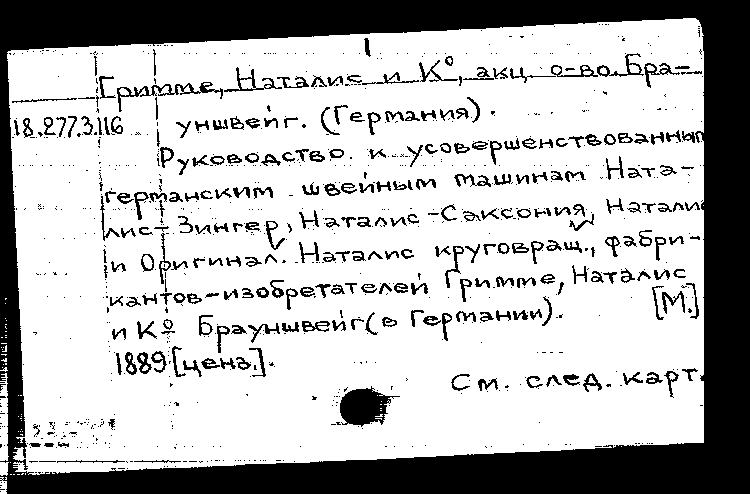 Гримме, Наталис и К°, акц. о-во. Бра-
18.277.3.116 уншвейг. (Германия).
Руководство к усовершенствованным
германским швейным машинам Ната-
лис-Зингер, Наталис-Саксония, Наталис
и Оригинал. Наталис круговращ., фабри-
кантов-изобретателей Гримме, Наталис
и К° Брауншвейг (в Германии). [М.]
1889 [ценз.].
См. след. карт.